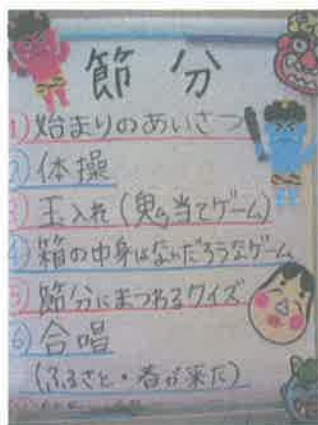 節分
1) 始まりのあいさつ
2) 体操
3) 玉入れ(鬼当てゲーム)
4) 箱の中身はなんだろうなゲーム
5) 節分にまつわるクイズ
6) 合唱
(ふるさと・春が来た)